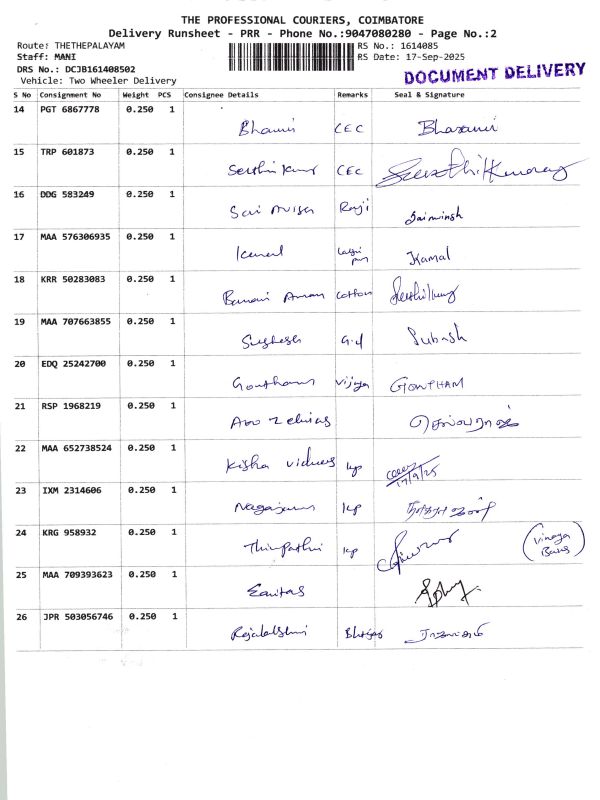 THE PROFESSIONAL COURIERS, COIMBATORE
Delivery Runsheet - PRR - Phone No.:9047080280 - Page No.:2
Route: THETHEPALAYAM RS No.: 1614085
Staff: MANI RS Date: 17-Sep-2025
DRS No.: DCJB161408502
Vehicle: Two Wheeler Delivery
DOCUMENT DELIVERY
S No Consignment No Weight PCS Consignee Details Remarks Seal & Signature
14 PGT 6867778 0.250 1 CEC
15 TRP 601873 0.250 1 CEC
16 DDG 583249 0.250 1 Sai
17 MAA 576306935 0.250 1 Kamal
18 KRR 50283083 0.250 1 Cotton
19 MAA 707663855 0.250 1 G.d Subash
20 EDQ 25242700 0.250 1 Goutham Vijaya GOWTHAM
21 RSP 1968219 0.250 1 செல்வராஜ்
22 MAA 652738524 0.250 1 Kisha kp 17/9/25
23 IXM 2314606 0.250 1 kp
24 KRG 958932 0.250 1 Thirupathi kp (Vinaya
25 MAA 709393623 0.250 1
26 JPR 503056746 0.250 1 Rajalakshmi